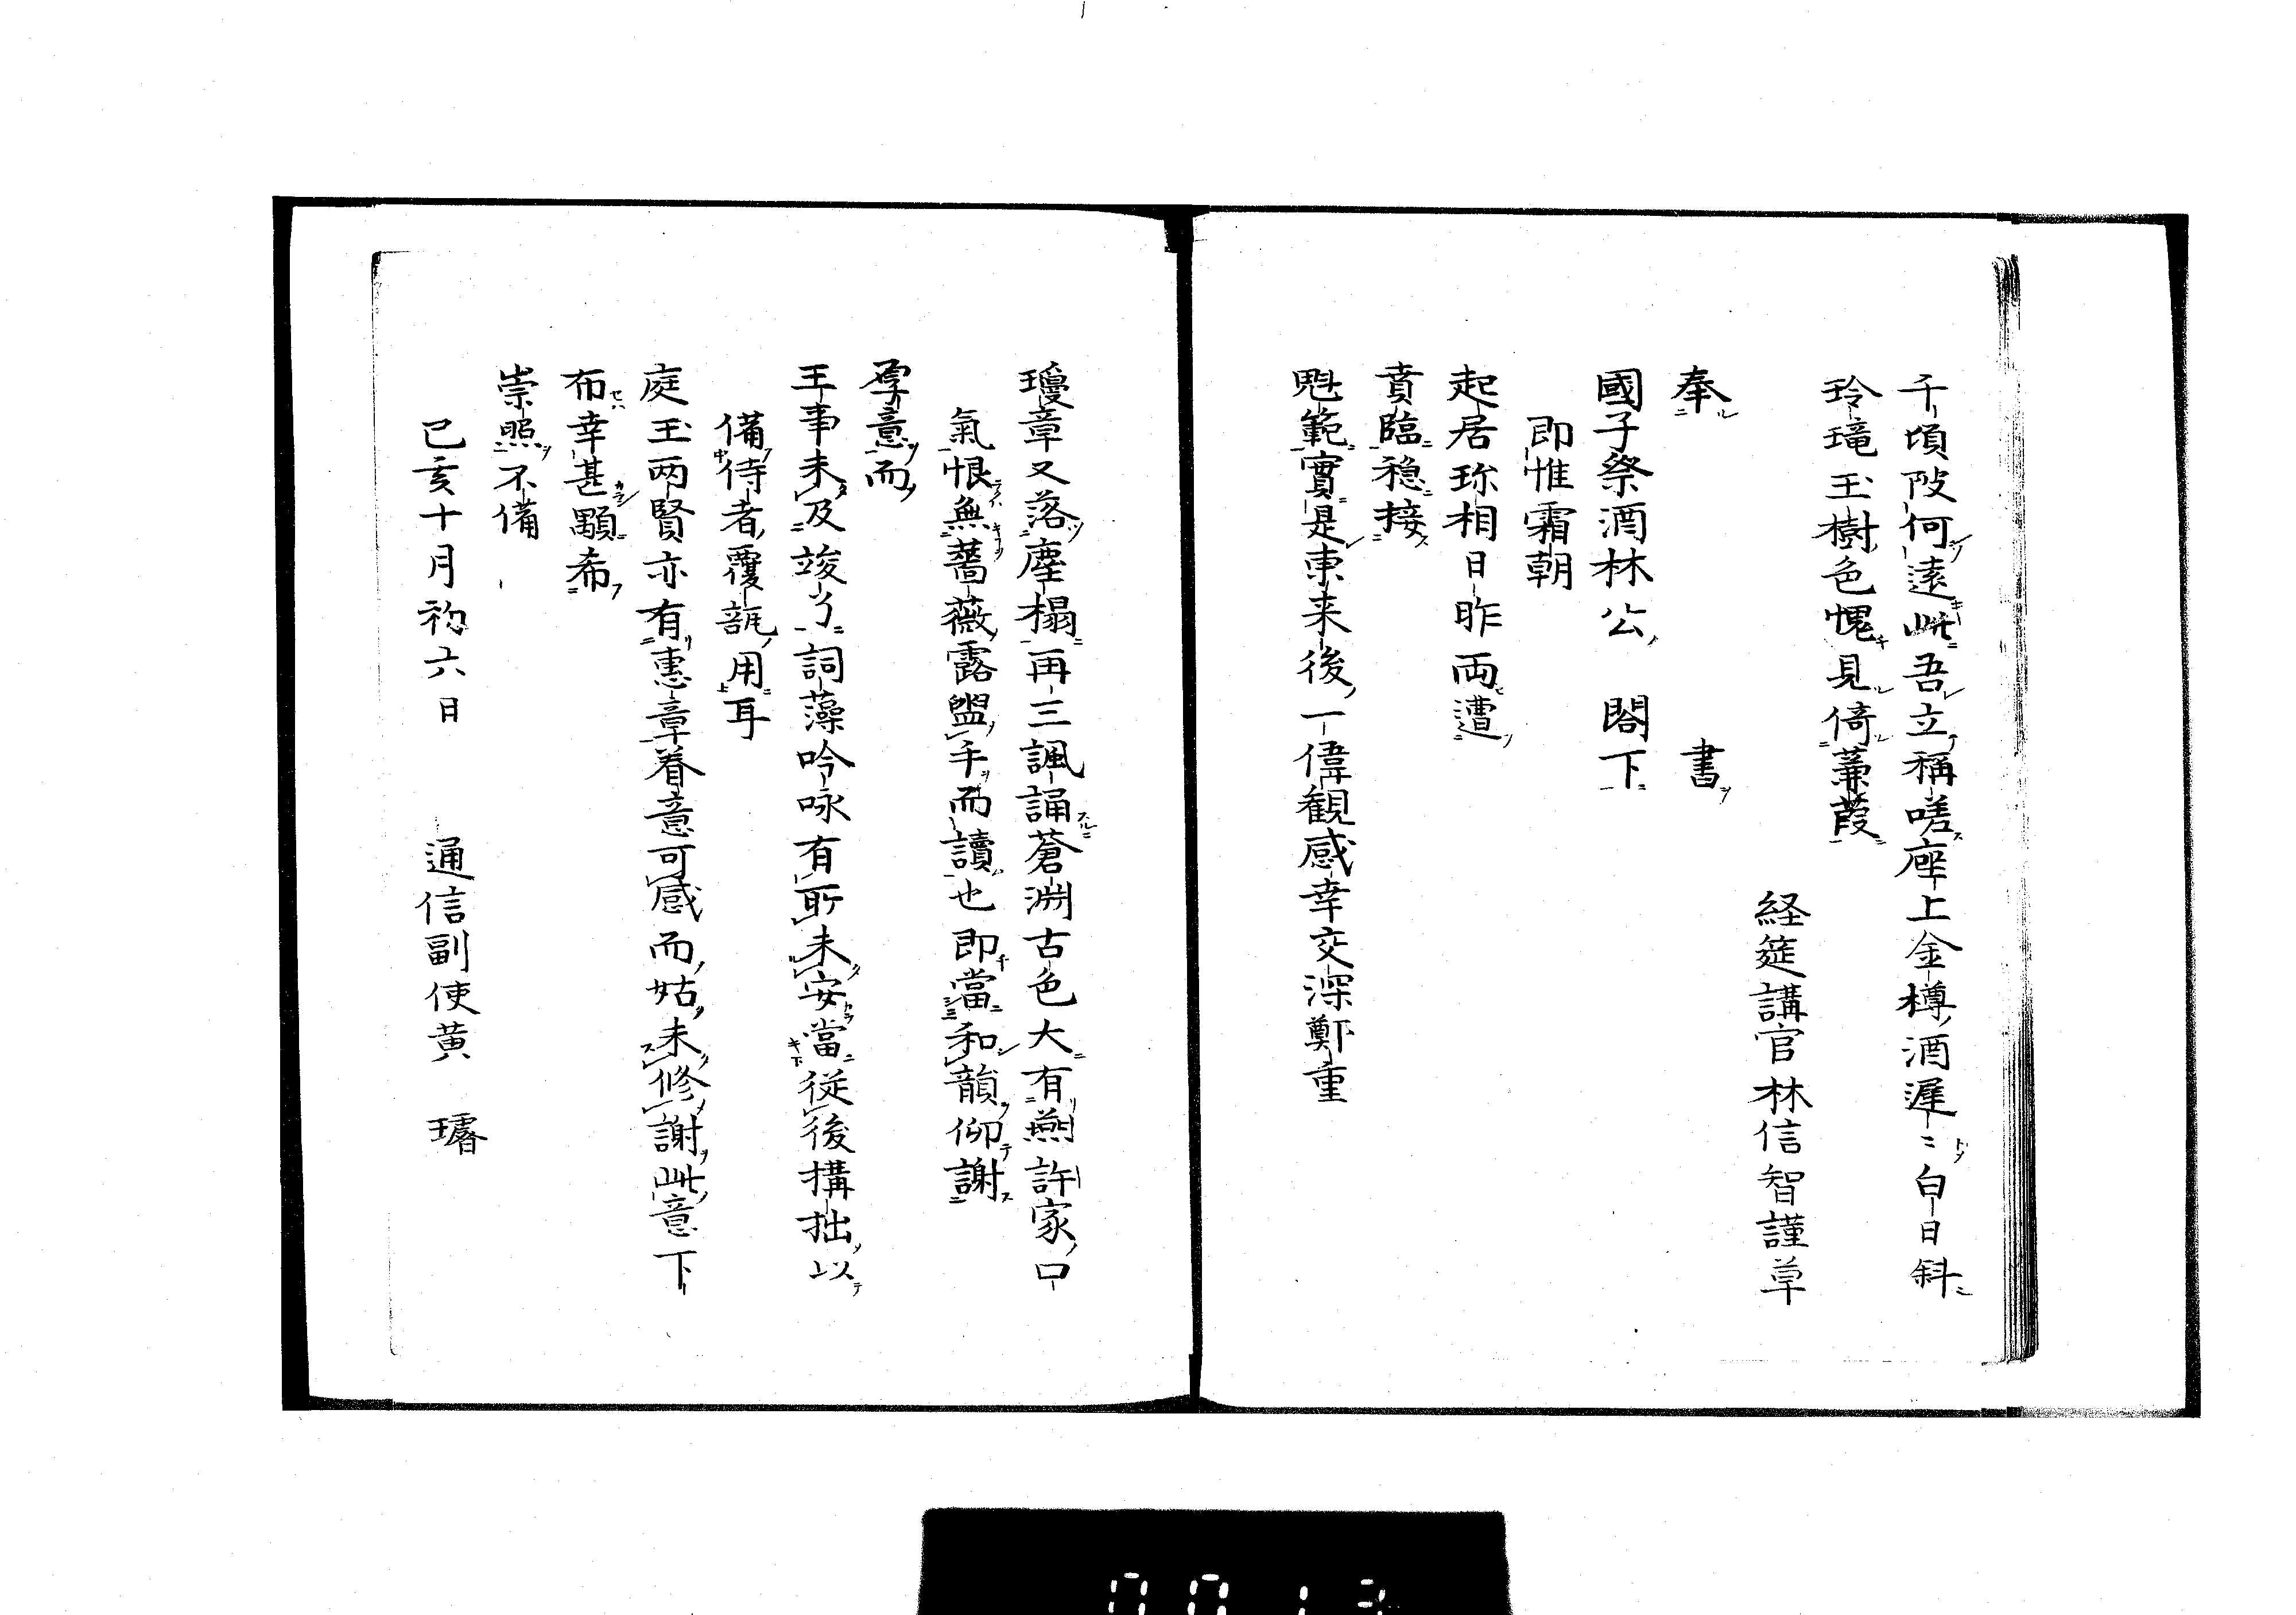 千頃陂何遠此吾立稱嗟座上金樽酒遅〻白日斜
玲瓏玉樹色愧見倚蒹葭
経筵講官林信智謹草
奉　書
國子祭酒林公　閤下
即惟霜朝
起居珎相日昨両遭
賁臨穏接
児範實是東来後一偉観感幸交深鄭重
瓊章又落塵榻再三諷誦蒼渊古色大有燕許家口
氣恨無薔薇露盥手而讀也即當和韻仰謝
厚意而
王事未及竣了詞藻吟咏有所未安當従後搆拙以
備侍者覆瓿用耳
庭玉两賢亦有惠章眷意可感而姑未修謝此意下
布幸甚顒希
崇照不備
己亥十月初六日　通信副使黄　璿